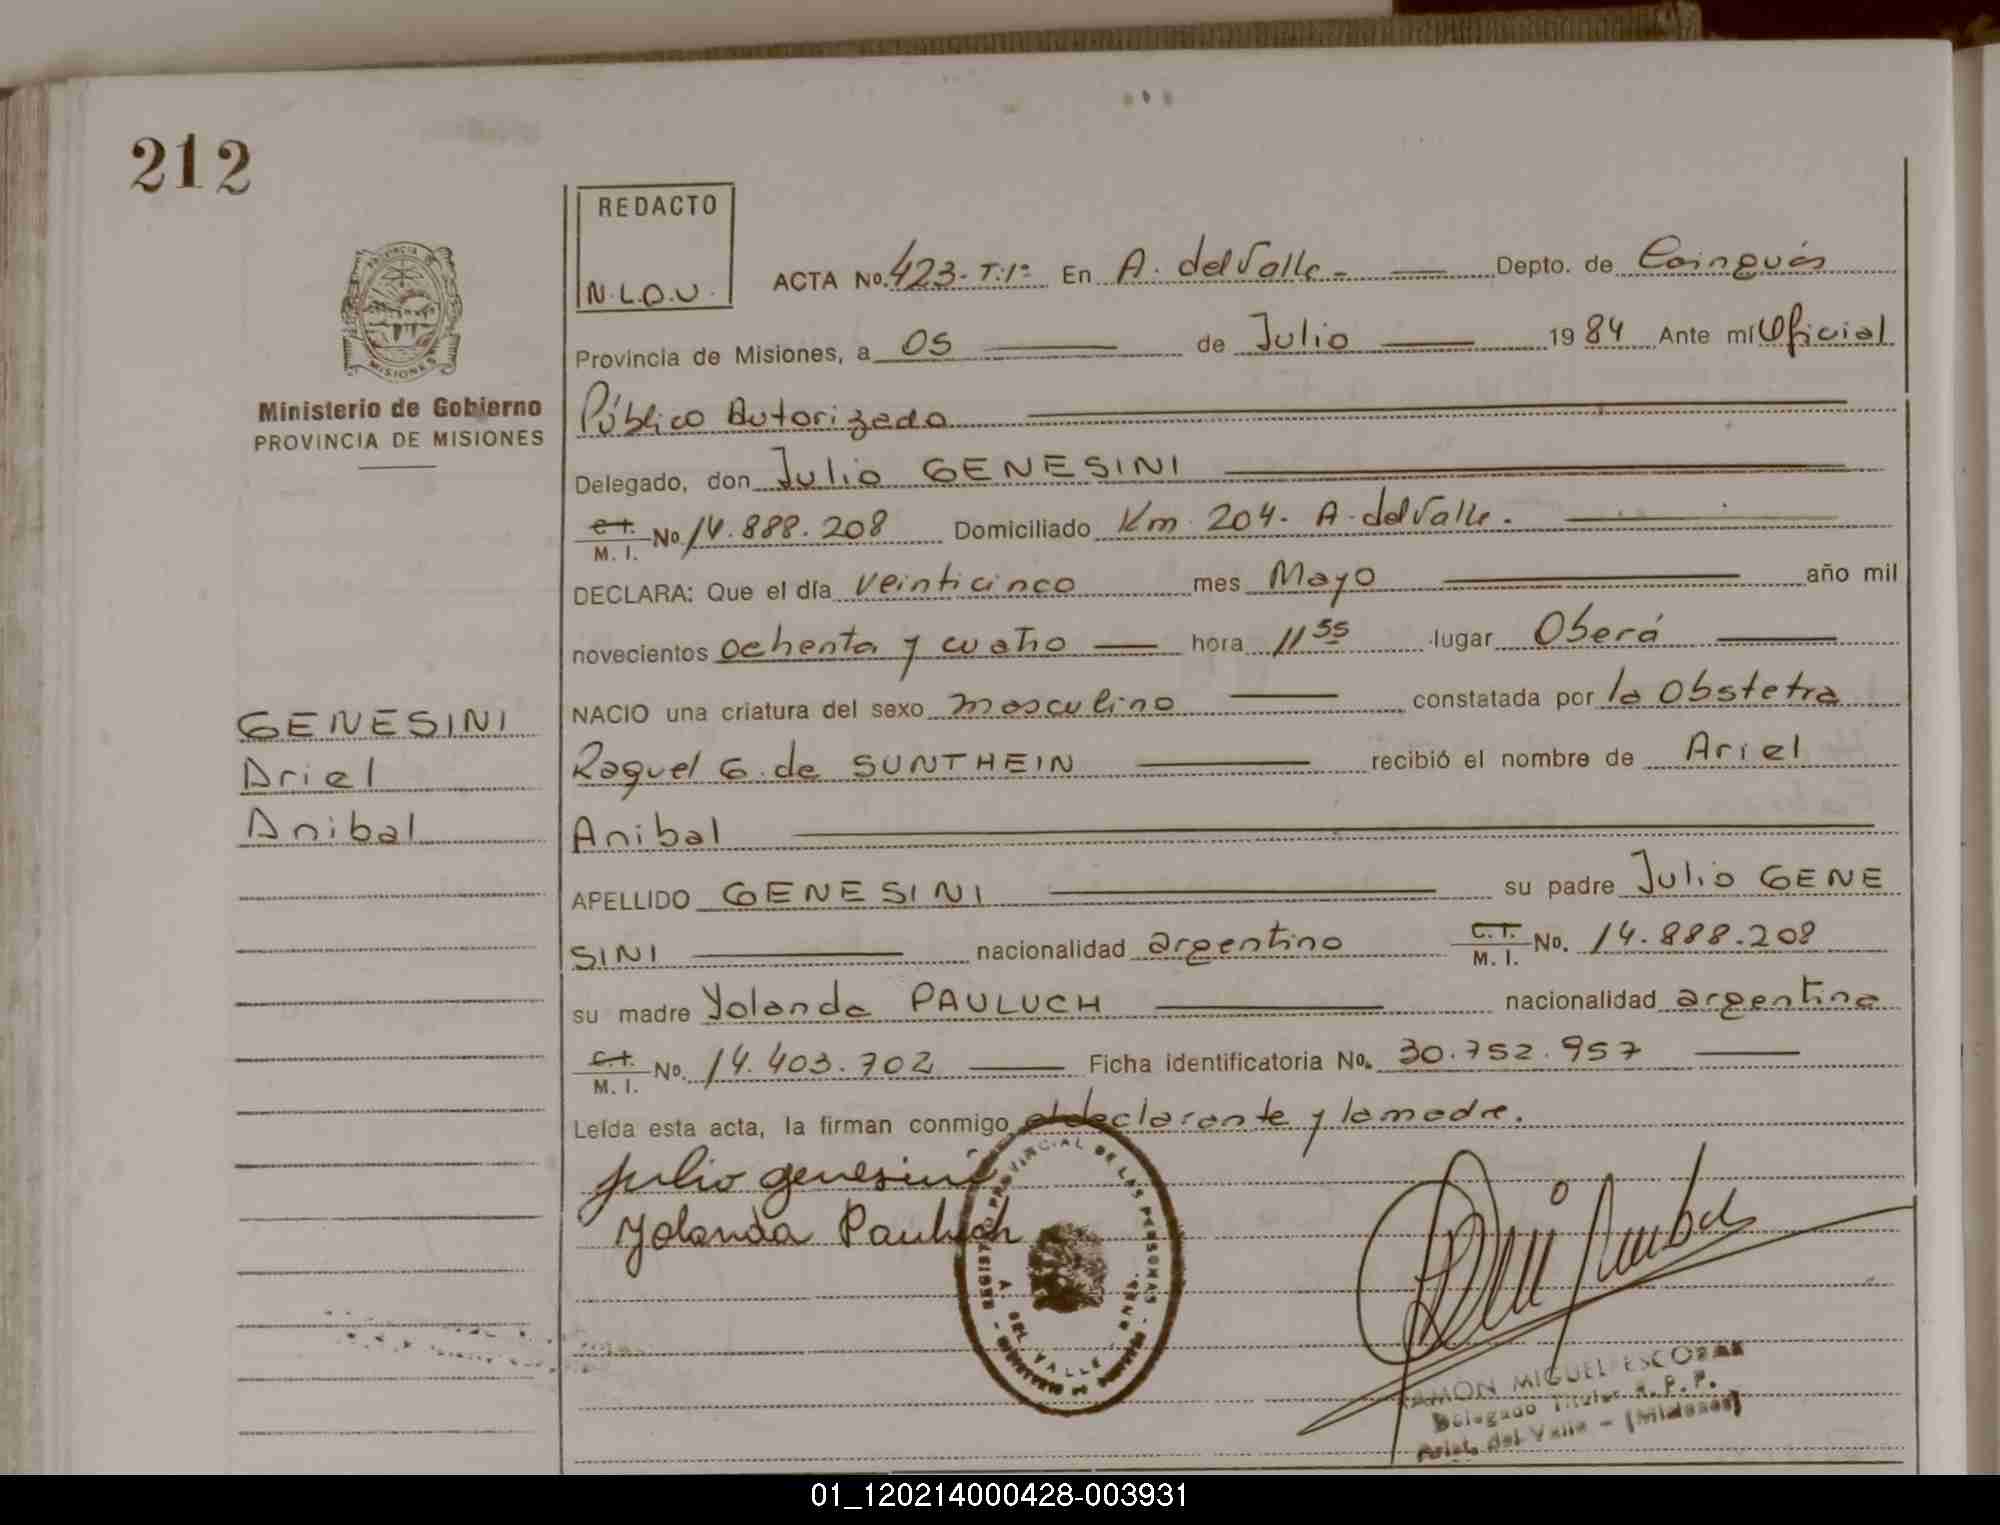 212
PROVINCIA DE
MISIONES
Ministerio de Gobierno
PROVINCIA DE MISIONES
GENESINI
Ariel
Anibal
REDACTO
N.L.O.U.
ACTA No. 423-T:1º En A. del Valle.- Depto. de Cainguás
Provincia de Misiones, a 05 de Julio 1984 Ante mí Oficial
Público Autorizado
Delegado, don Julio GENESINI
C.I. M. I. No. 14.888.208 Domiciliado Km. 204. A. del Valle.
DECLARA: Que el día veinticinco mes Mayo año mil
novecientos ochenta y cuatro hora 11 55 lugar Oberá
NACIO una criatura del sexo masculino constatada por la Obstetra
Raquel G. de SUNTHEIN recibió el nombre de Ariel
Anibal
APELLIDO GENESINI su padre Julio GENE
SINI nacionalidad argentino C.I. M. I. No. 14.888.208
su madre Yolanda PAULUCH nacionalidad argentina
C.I. M. I. No. 14.403.702 Ficha identificatoria No. 30.752.957
Leída esta acta, la firman conmigo el declarante y la madre.
julio genesini
Yolanda Pauluch
REGISTRO PROVINCIAL DE LAS PERSONAS
A. DEL VALLE - MNES.
RAMON MIGUEL ESCOBAR
Delegado Titular R. P. P.
Arist. del Valle - (Misiones)
01_120214000428-003931